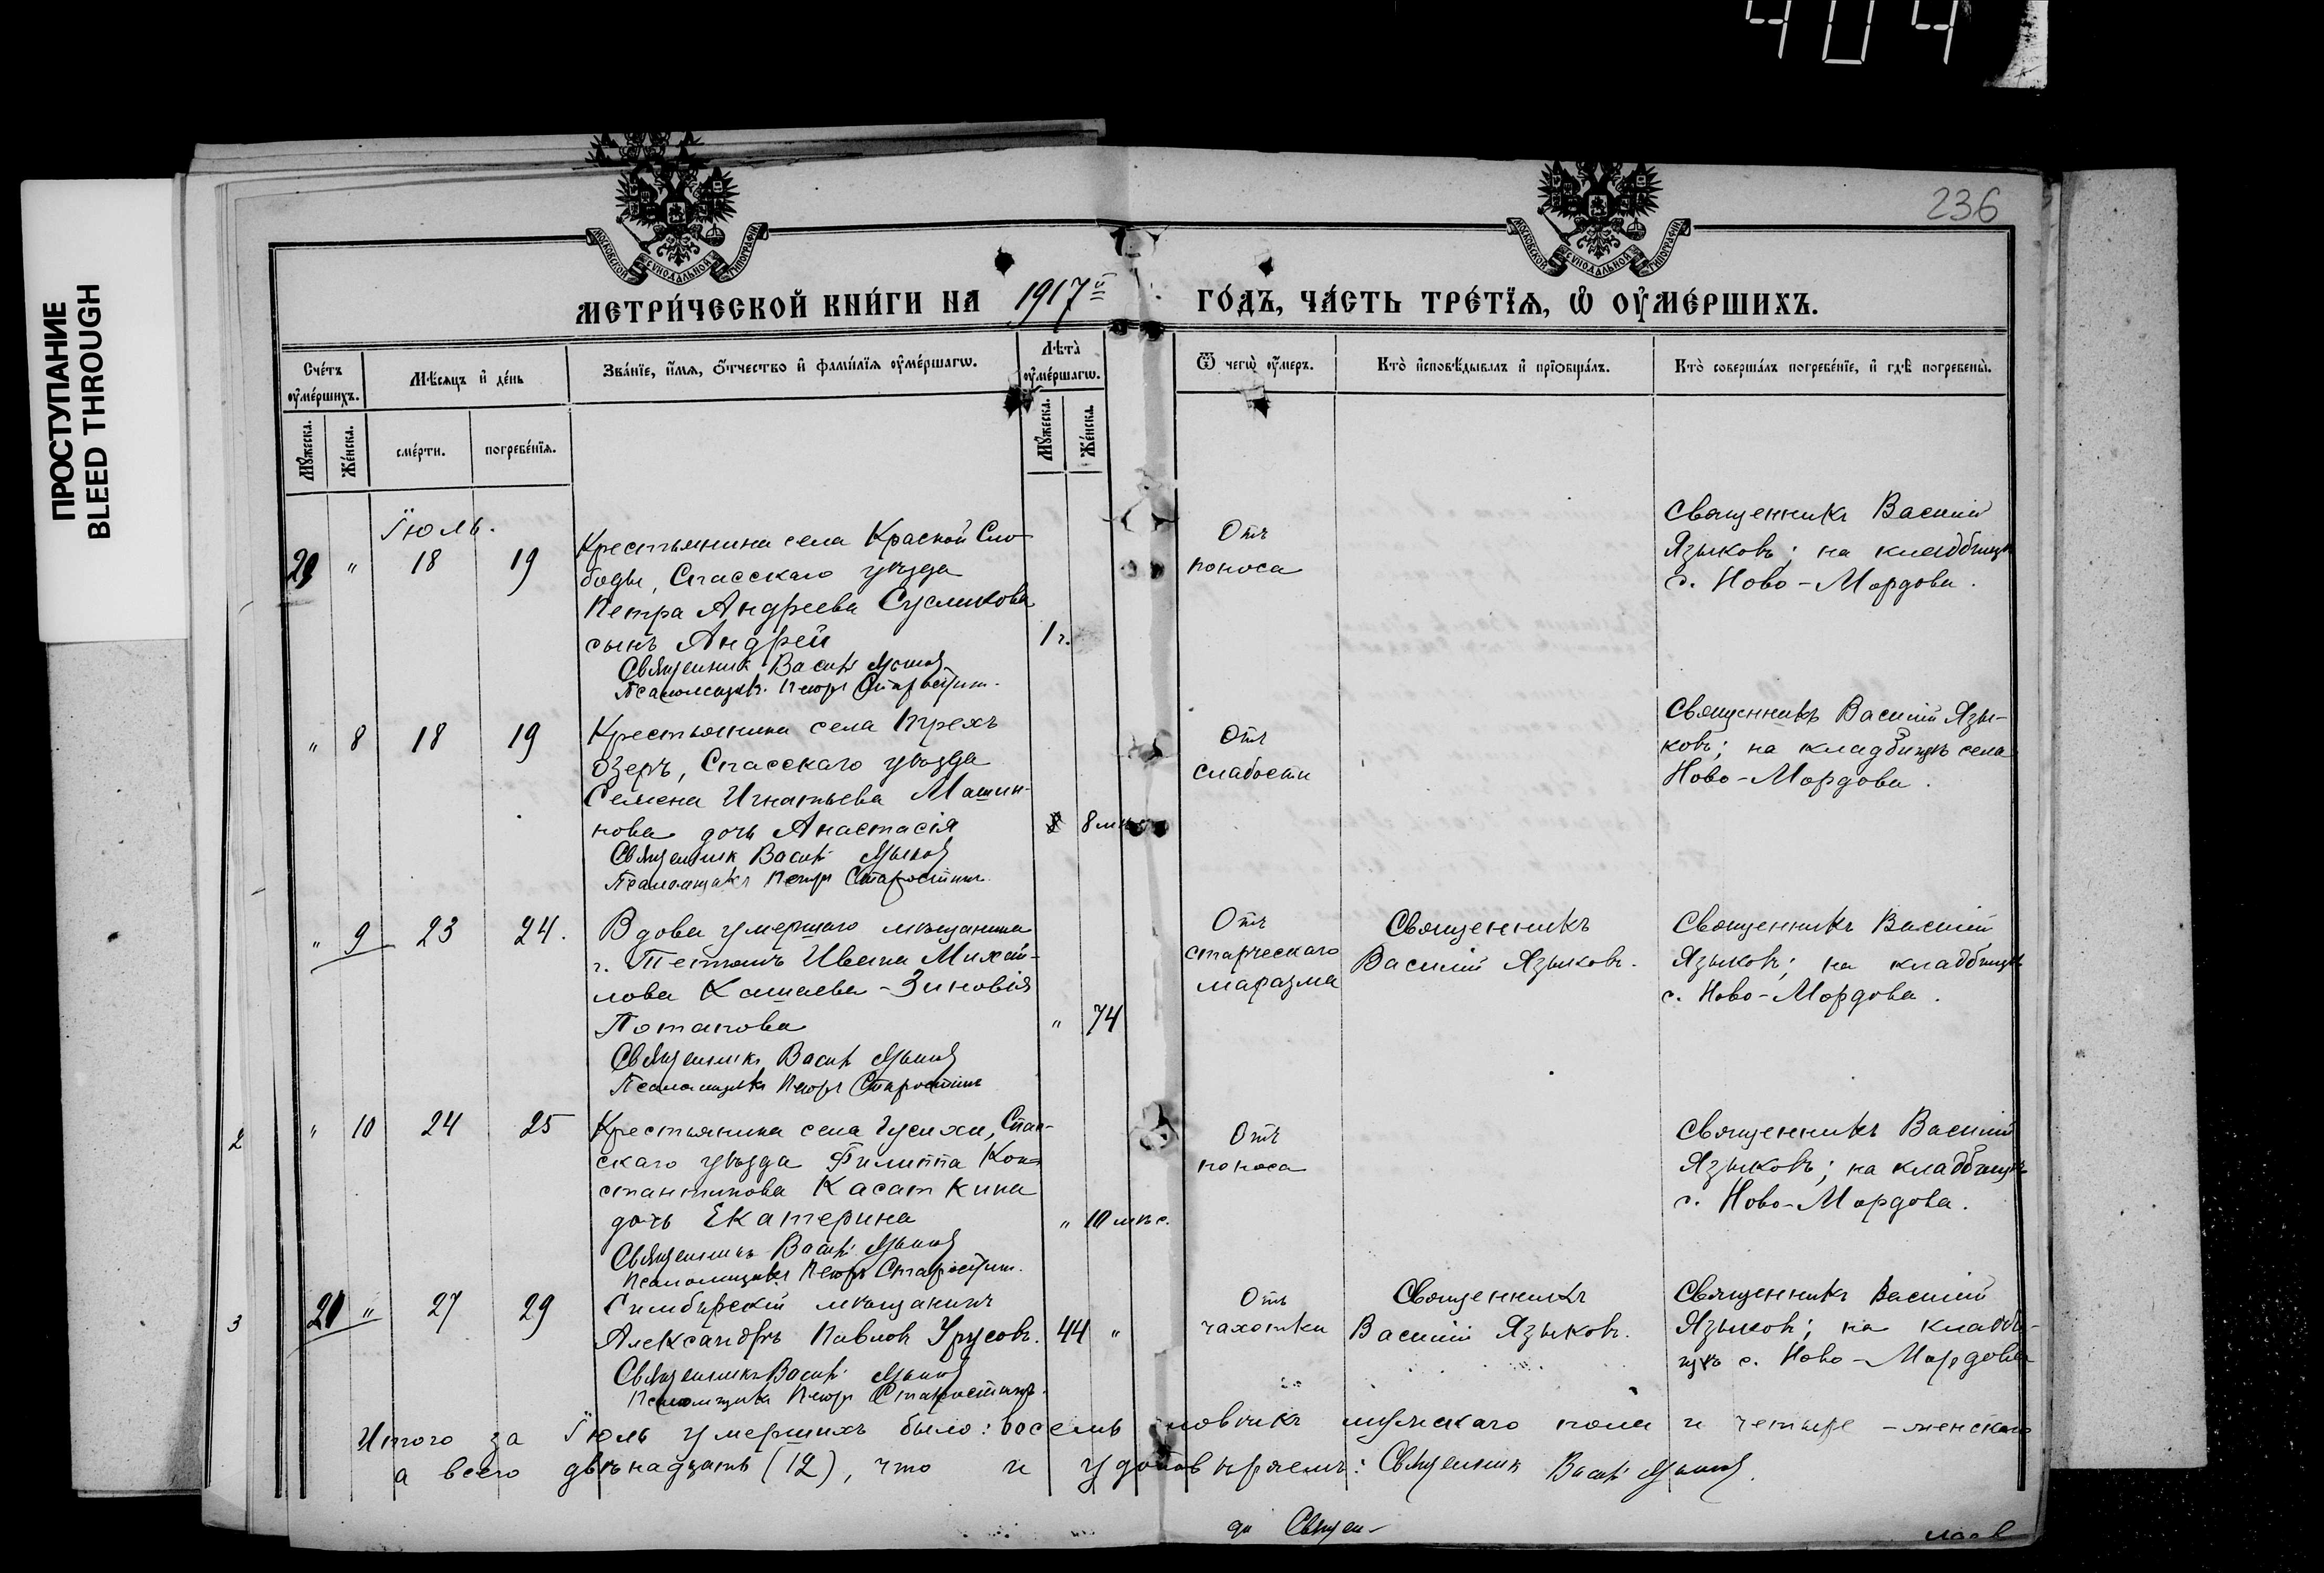 404
ПРОСТУПАНИЕ
BLEED THROUGH
236
МОСКОВСКОЙ СУНОДАЛЬНОЙ ТИПОГРАФІИ
МОСКОВСКОЙ СУНОДАЛЬНОЙ ТИПОГРАФІИ
МЕТРИ́ЧЕСКОЙ КНИ́ГИ НА 1917й ГО́ДЪ, ЧА́СТЬ ТРЕ́ТЇѦ, Ѡ҆ ОУ҆МЕ́РШИХЪ.
Сче́тъ оу҆ме́ршихъ.
Мѣ́сяцъ и҆ де́нь
Зва́нїе, и҆́мя, ѻ҆́тчество и҆ фами́лїя оу҆ме́ршагѡ.
Лѣта̀ оу҆ме́ршагѡ.
Ѿ чегѡ̀ оу҆́меръ.
Кто̀ и҆сповѣ́дывалъ и҆ прїѡбща́лъ.
Кто̀ соверша́лъ погребе́нїе, и҆ гдѣ̀ погребены̀.
Мꙋ́жеска.
Же́нска.
сме́рти.
погребе́нїя.
Мꙋ́жеска.
Же́нска.
Іюль.
20 " 18 19
Крестьянина села Красной Сло-
боды, Спасскаго уѣзда
Петра Андреева Сусликова
сынъ Андрей 1 г.
Священникъ Васил. Языковъ
Псаломщикъ Петръ Старостин.
Отъ
поноса
Священникъ Василій
Языковъ; на кладбищѣ
с. Ново-Мордова.
" 8 18 19
Крестьянина села Трехъ
Озеръ, Спасскаго уѣзда
Семена Игнатьева Машин-
нова дочь Анастасія 8 мѣс
Священник Васил. Языковъ
Псаломщикъ Петръ Старостин
Отъ
слабости
Священникъ Василій Язы-
ковъ; на кладбищѣ села
Ново-Мордова.
" 9 23 24.
Вдова умершаго мѣщанина
г. Тетюшъ Ивана Михай-
лова Камаева - Зиновія
Потапова " 74
Священникъ Васил. Языковъ
Псаломщикъ Петръ Старостинъ
Отъ
старческаго
маразма
Священникъ
Василій Языковъ.
Священникъ Василій
Языковъ; на кладбищѣ
с. Ново-Мордова.
2
" 10 24 25
Крестьянина села Гусихи, Спас-
скаго уѣзда Филиппа Кон-
стантинова Касаткина
дочь Екатерина " 10 мѣс.
Священникъ Васил. Языковъ
Псаломщикъ Петръ Старостин.
Отъ
поноса
Священникъ Василій
Языковъ; на кладбищѣ
с. Ново-Мордова.
3
21 " 27 29
Симбирскій мѣщанинъ
Александръ Павловъ Урусовъ. 44 "
Священникъ Васил. Языковъ
Псаломщикъ Петръ Старостинъ.
Отъ
чахотки
Священникъ
Василій Языковъ.
Священникъ Василій
Языковъ; на кладби-
щѣ с. Ново-Мордова
Итого за Іюль умершихъ было: восемь человѣкъ мужскаго пола и четыре - женскаго
а всего двѣнадцать (12), что и удостовѣряемъ: Священник Васил. Языковъ.